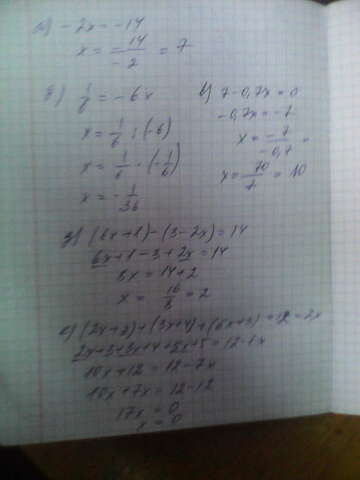 а) -2x = -14
x = -14/-2 = 7
б) 1/6 = -6x
x = 1/6 : (-6)
x = 1/6 · (-1/6)
x = -1/36
в) 7 - 0,7x = 0
-0,7x = -7
x = -7/-0,7 =
x = 70/7 = 10
д) (6x+1) - (3-2x) = 14
6x + 1 - 3 + 2x = 14
8x = 14 + 2
x = 16/8 = 2
2x + 3 + 3x + 4 + 5x + 5 = 12 - 7x
10x + 12 = 12 - 7x
10x + 7x = 12 - 12
17x = 0
x = 0